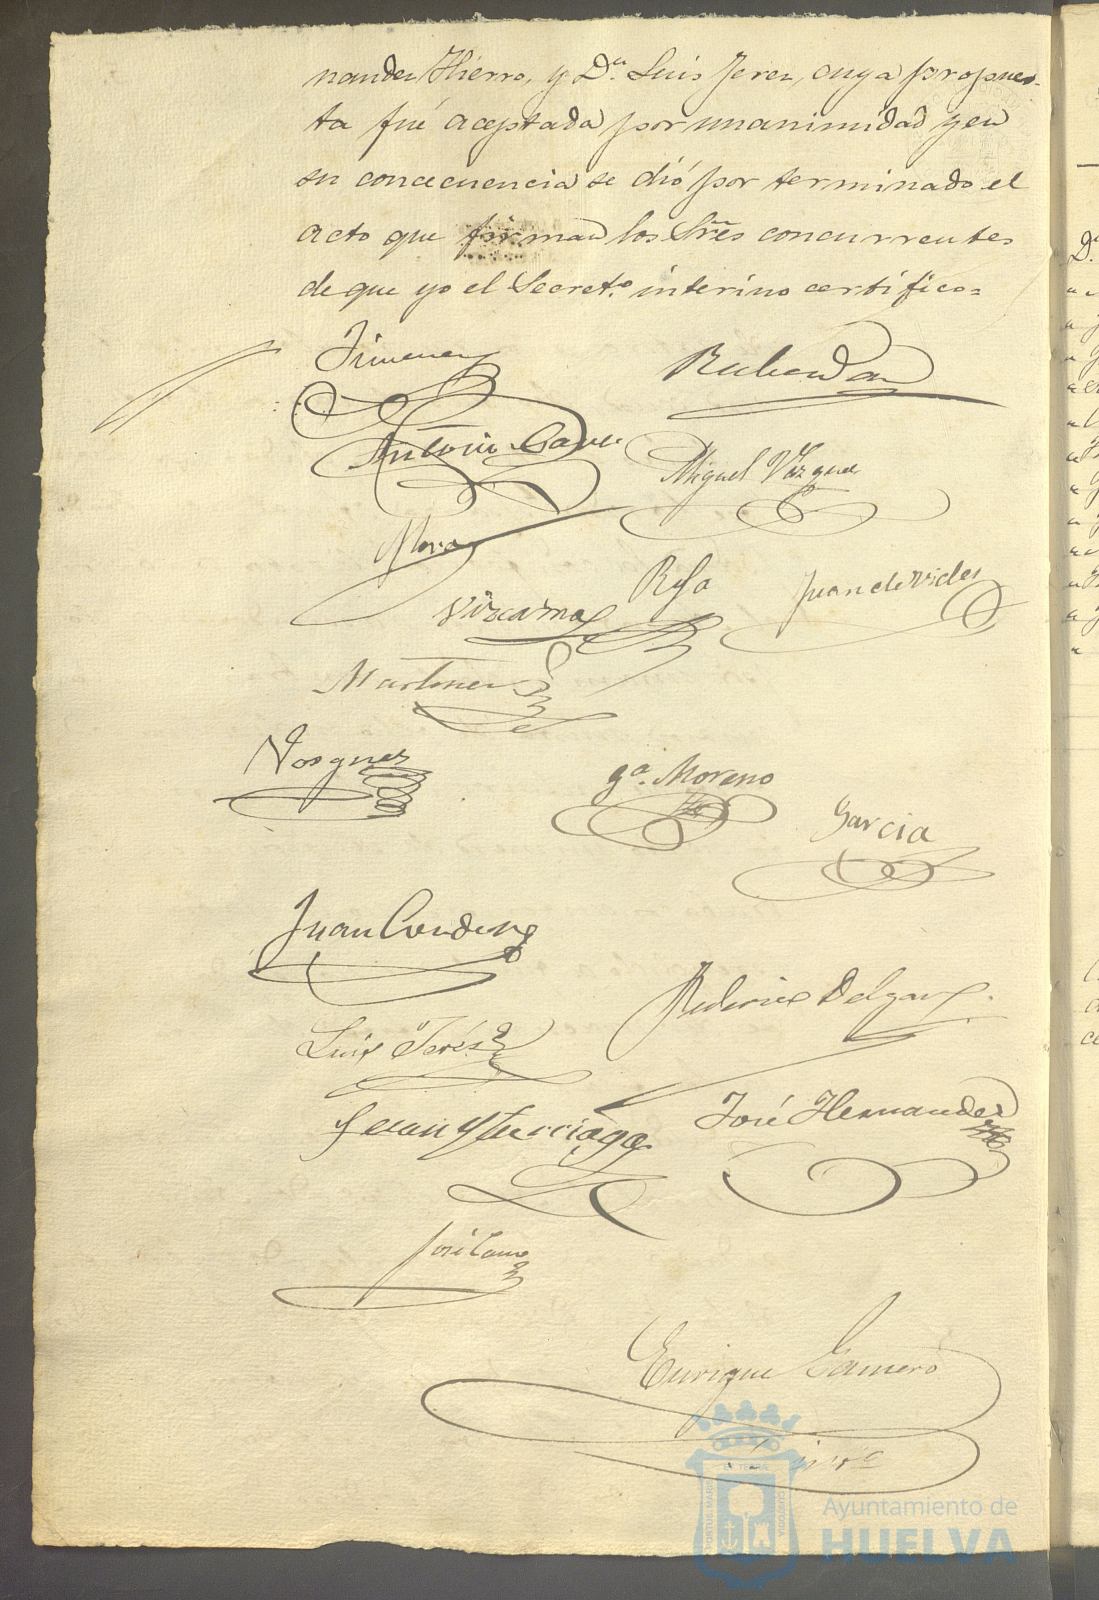 nandez Hierro, y Dn. Luis Jerez, cuya propues-
ta fué aceptada por unanimidad y en
su concecuencia se dió por terminado el
acto que firman los Sres concurrentes
de que yo el Secreto. interino certifico=
Jimenez
Antonio
Miguel Vazquez
Mora
Vizcaino
Rojo
Juan de Vides
Martinez
Vazquez
Ga. Moreno
Garcia
Juan
Federico Delgado
Luis Jerés
José Hernandez
José
Enrique Camero
PORTUS MARIS
ET TERRAE
CUSTODIA
Ayuntamiento de
HUELVA